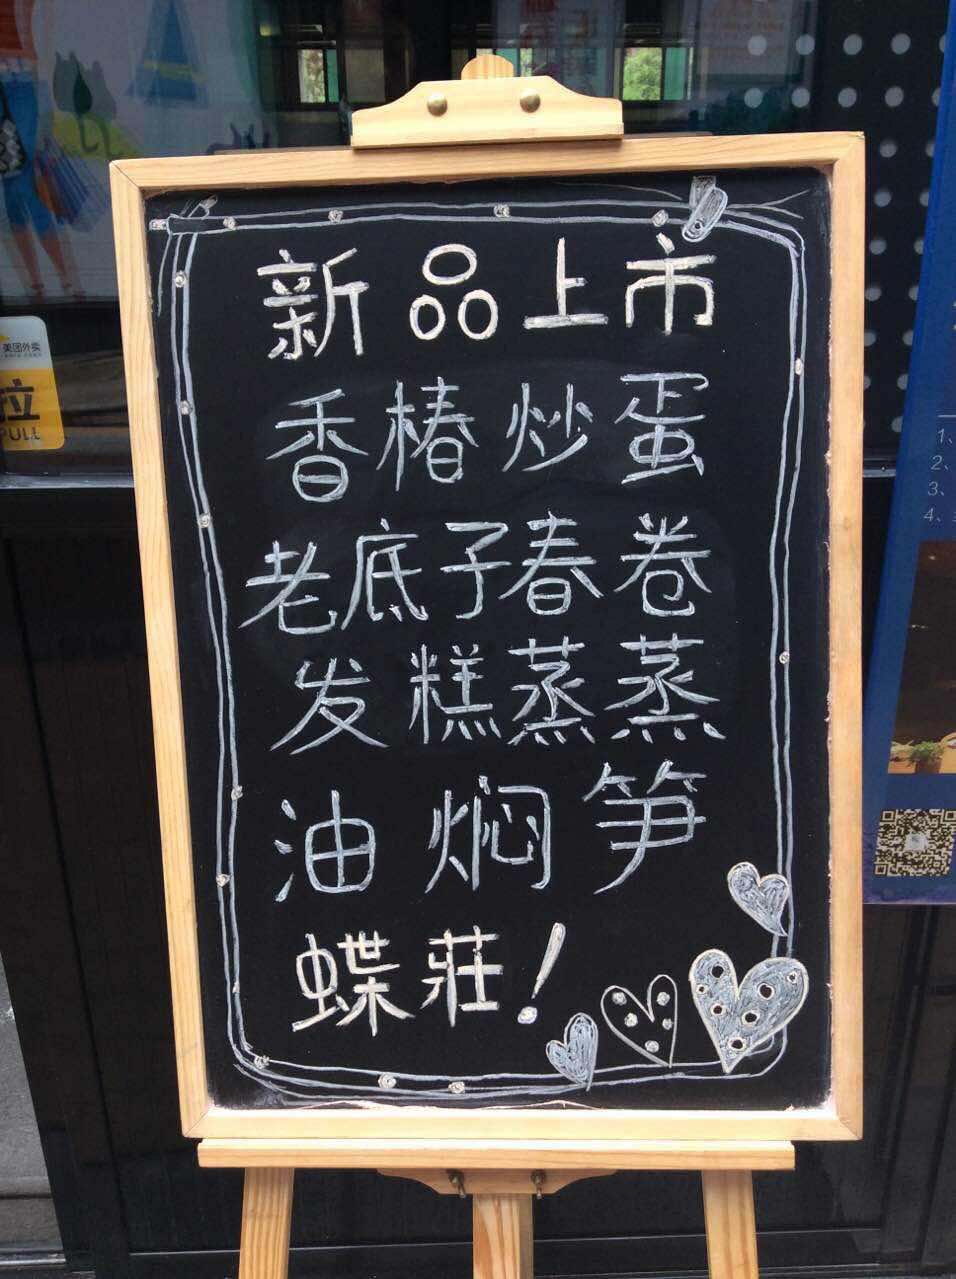 新品上市
香椿炒蛋
老底子春卷
发糕蒸蒸
油焖笋
蝶莊!
美团外卖
拉
PULL
1、
2、
3、
4、